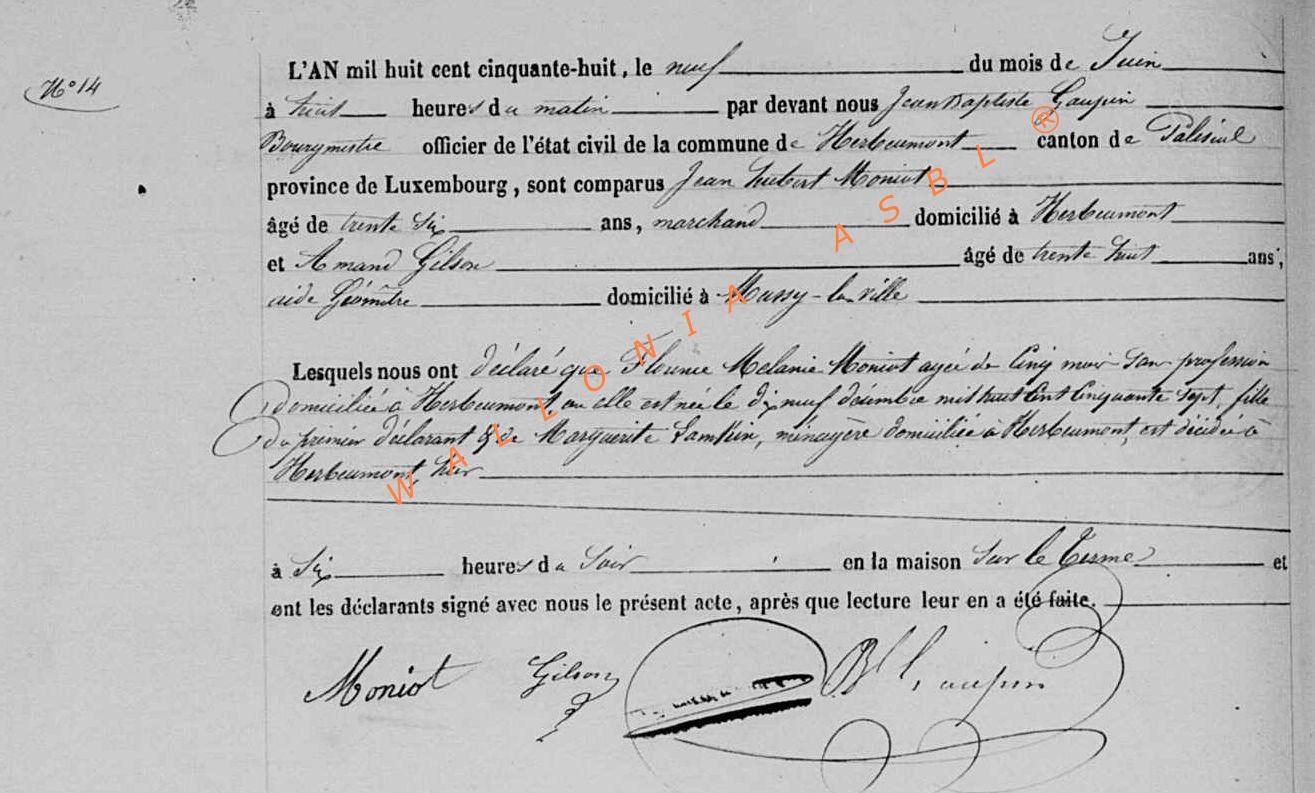 N° 14
L'AN mil huit cent cinquante-huit, le neuf du mois de Juin
à huit heures du matin par devant nous Jean Baptiste Gaupin
Bourgmestre officier de l'état civil de la commune de Herbeumont canton de Paliseul
province de Luxembourg, sont comparus Jean hubert Moniot
âgé de trente Six ans, marchand domicilié à Herbeumont
et Amand Gilson âgé de trente huit ans,
aide Géomètre domicilié à Mussy-la-ville
Lesquels nous ont déclaré que Melanie Moniot agée de Cinq mois San profession
domiciliée à Herbeumont, ou elle est née le dix neuf décembre mil huit Cent Cinquante Sept, fille
du premier déclarant & de Marguerite Lamkin, ménagère domiciliée à Herbeumont, est décédée à
Herbeumont, hier
à Six heures du Soir en la maison Sur le Terme et
ont les déclarants signé avec nous le présent acte, après que lecture leur en a été faite.
Moniot Gilson Bte Gaupin
WALLONIA ASBL ®